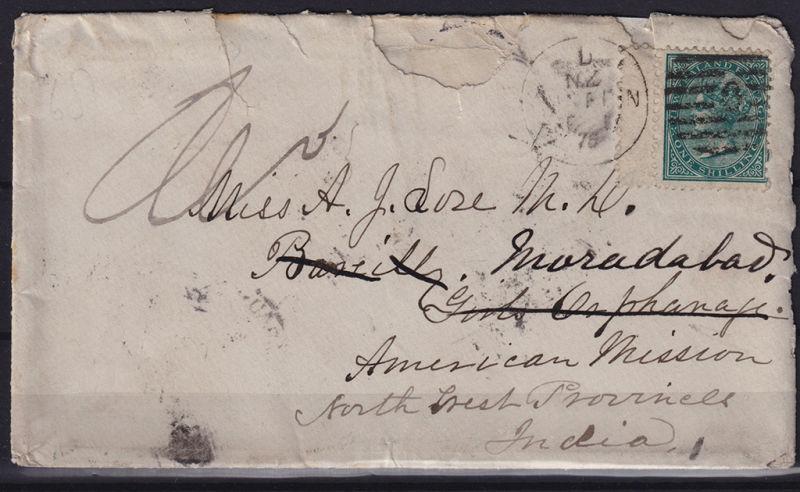 D
N.Z
N
ONE SHILLING
Miss A. J. Lore M. D.
Bareilly. Moradabad.
Girls Orphanage.
American Mission
North West Provinces
India,